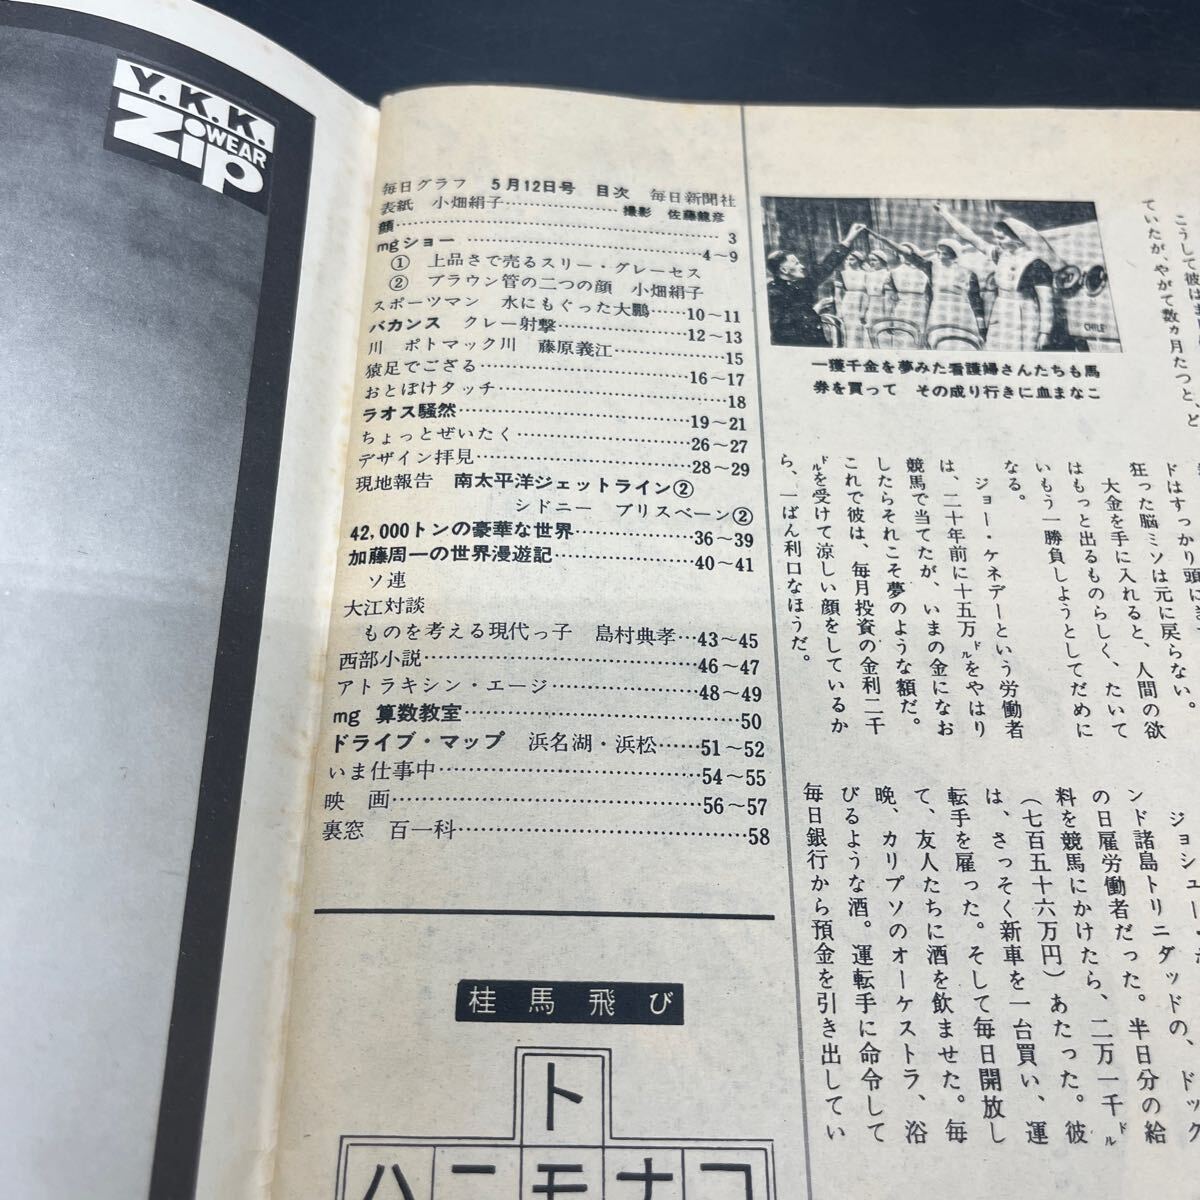 Y.K.K.
Zip WEAR
毎日グラフ 5月12日号 目次 毎日新聞社
表紙 小畑絹子………………撮影 佐藤龍彦
顔……………………………………3
mgショー……………………………4〜9
① 上品さで売るスリー・グレーセス
② ブラウン管の二つの顔 小畑絹子
スポーツマン 水にもぐった大鵬……10〜11
バカンス クレー射撃………………12〜13
川 ポトマック川 藤原義江…………15
猿足でござる………………………16〜17
おとぼけタッチ……………………18
ラオス騒然…………………………19〜21
ちょっとぜいたく…………………26〜27
デザイン拝見………………………28〜29
現地報告 南太平洋ジェットライン②
シドニー ブリスベーン②
42,000トンの豪華な世界……………36〜39
加藤周一の世界漫遊記………………40〜41
ソ連
大江対談
ものを考える現代っ子 島村典孝…43〜45
西部小説……………………………46〜47
アトラキシン・エージ………………48〜49
mg 算数教室…………………………50
ドライブ・マップ 浜名湖・浜松……51〜52
いま仕事中…………………………54〜55
映 画………………………………56〜57
裏窓 百一科…………………………58
桂馬飛び
ト
ハニモナコ
CHILE
一獲千金を夢みた看護婦さんたちも馬
券を買って その成り行きに血まなこ
こうして彼は
ていたが、やがて数ヵ月たつと、ど
ドはすっかり頭に
狂った脳ミソは元に戻らない。
大金を手に入れると、人間の欲
はもっと出るものらしく、たいて
いもう一勝負しようとしてだめに
なる。
ジョー・ケネデーという労働者
は、二十年前に十五万ドルをやはり
競馬で当てたが、いまの金になお
したらそれこそ夢のような額だ。
これで彼は、毎月投資の金利二千
ドルを受けて涼しい顔をしているか
ら、一ばん利口なほうだ。
ジョシュー・
ンド諸島トリニダッドの、ドック
の日雇労働者だった。半日分の給
料を競馬にかけたら、二万一千ドル
（七百五十六万円）あたった。彼
は、さっそく新車を一台買い、運
転手を雇った。そして毎日開放し
て、友人たちに酒を飲ませた。毎
晩、カリプソのオーケストラ、浴
びるような酒。運転手に命令して
毎日銀行から預金を引き出してい